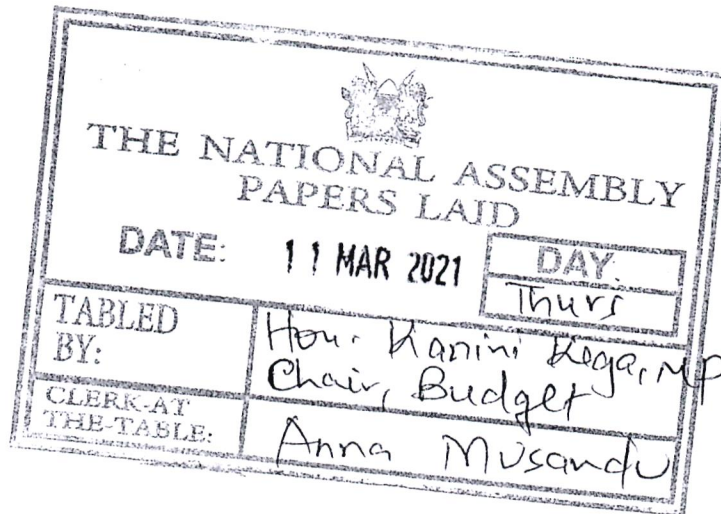 THE NATIONAL ASSEMBLY
PAPERS LAID
DATE: 11 MAR 2021
DAY.
Thurs
TABLED BY:
Hon. Kanini Kega, MP
Chair, Budget
CLERK-AT THE-TABLE:
Anna Musandu